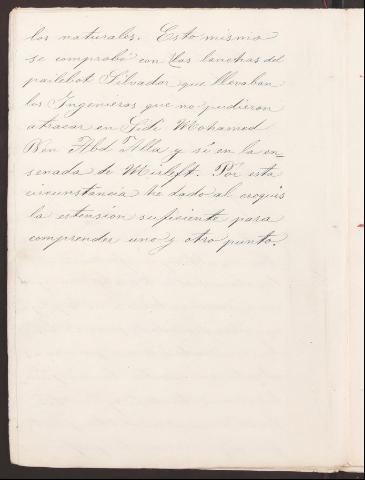 los naturales. Esto mismo
se comprobó con las lanchas del
pailebot Silvador que llevaban
los Ingenieros que no pudieron
atracar en Sidi Mohamed
Ben Abd Alla y sí en la en-
senada de Mirleft. Por esta
circunstancia he dado al croquis
la estension suficiente para
comprender uno y otro punto.